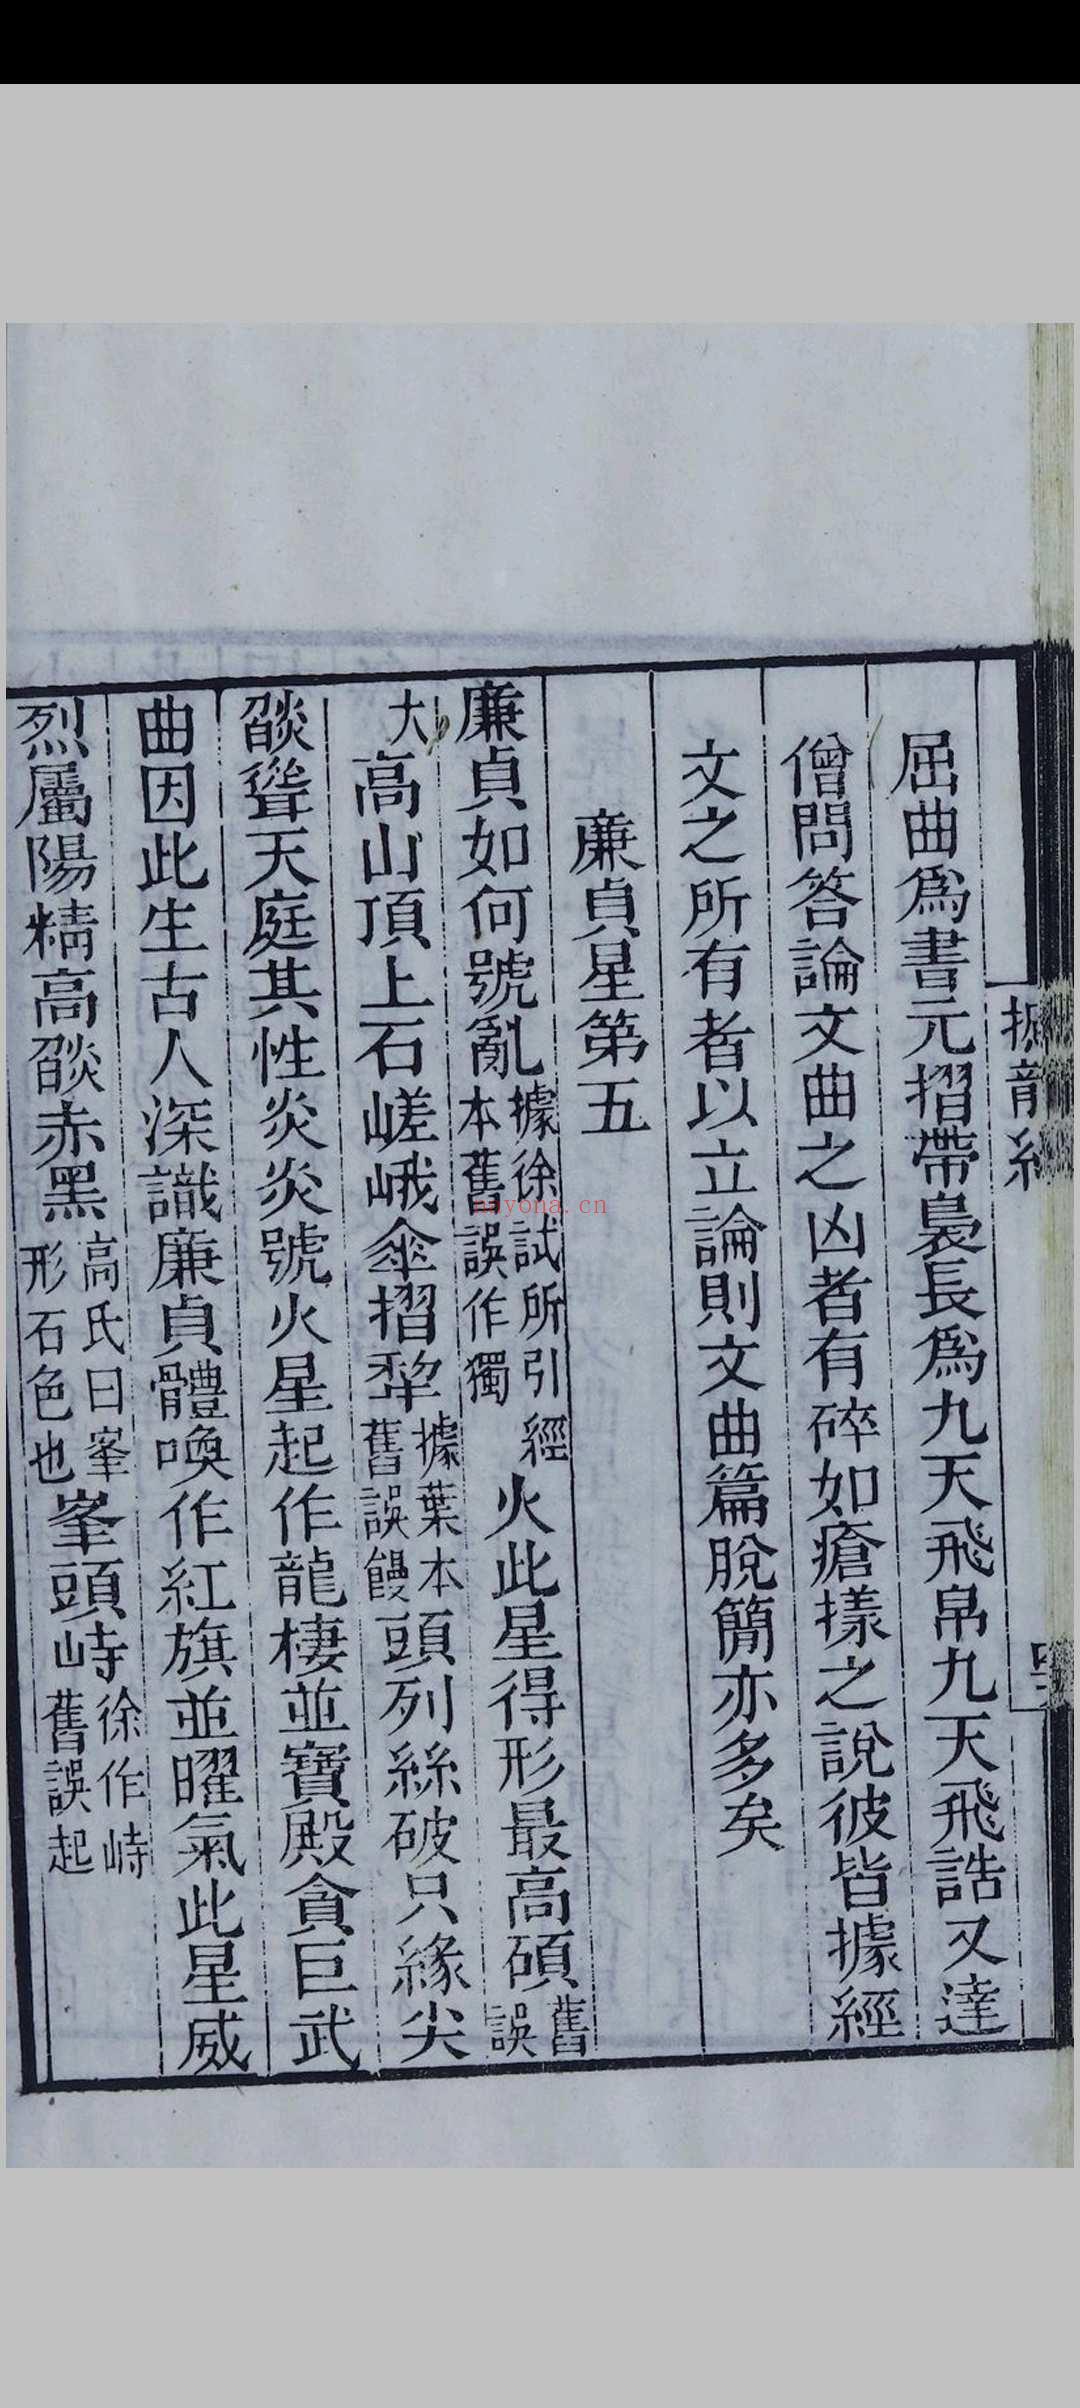 屈曲爲書元摺帶裊長爲九天飛帛九天飛誥又達
僧問答論文曲之凶者有碎如瘡㨾之說彼皆據經
文之所有者以立論則文曲篇脫簡亦多矣
廉貞星第五
廉貞如何號亂據徐試所引經本舊誤作獨火此星得形最高碩舊誤
大高山頂上石嵯峨傘摺犂據葉本舊誤饅頭列絲破只緣尖
燄聳天庭其性炎炎號火星起作龍棲並寶殿貪巨武
曲因此生古人深識廉貞體喚作紅旗並曜氣此星威
烈屬陽精高燄赤黑高氏曰峯形石色也峯頭峙徐作峙舊誤起
nayona.cn